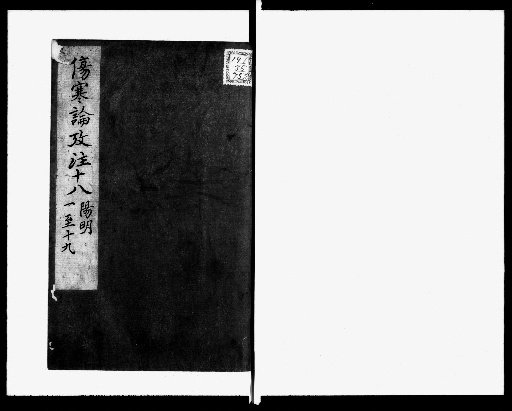 傷寒論攷註十八
陽明
一至十九